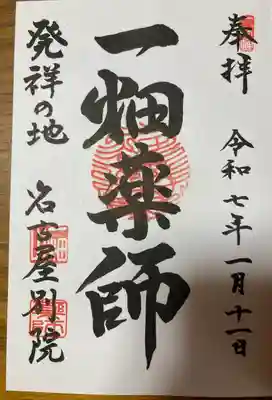 奉拝 令和七年一月十一日
一畑薬師
発祥の地 名古屋別院